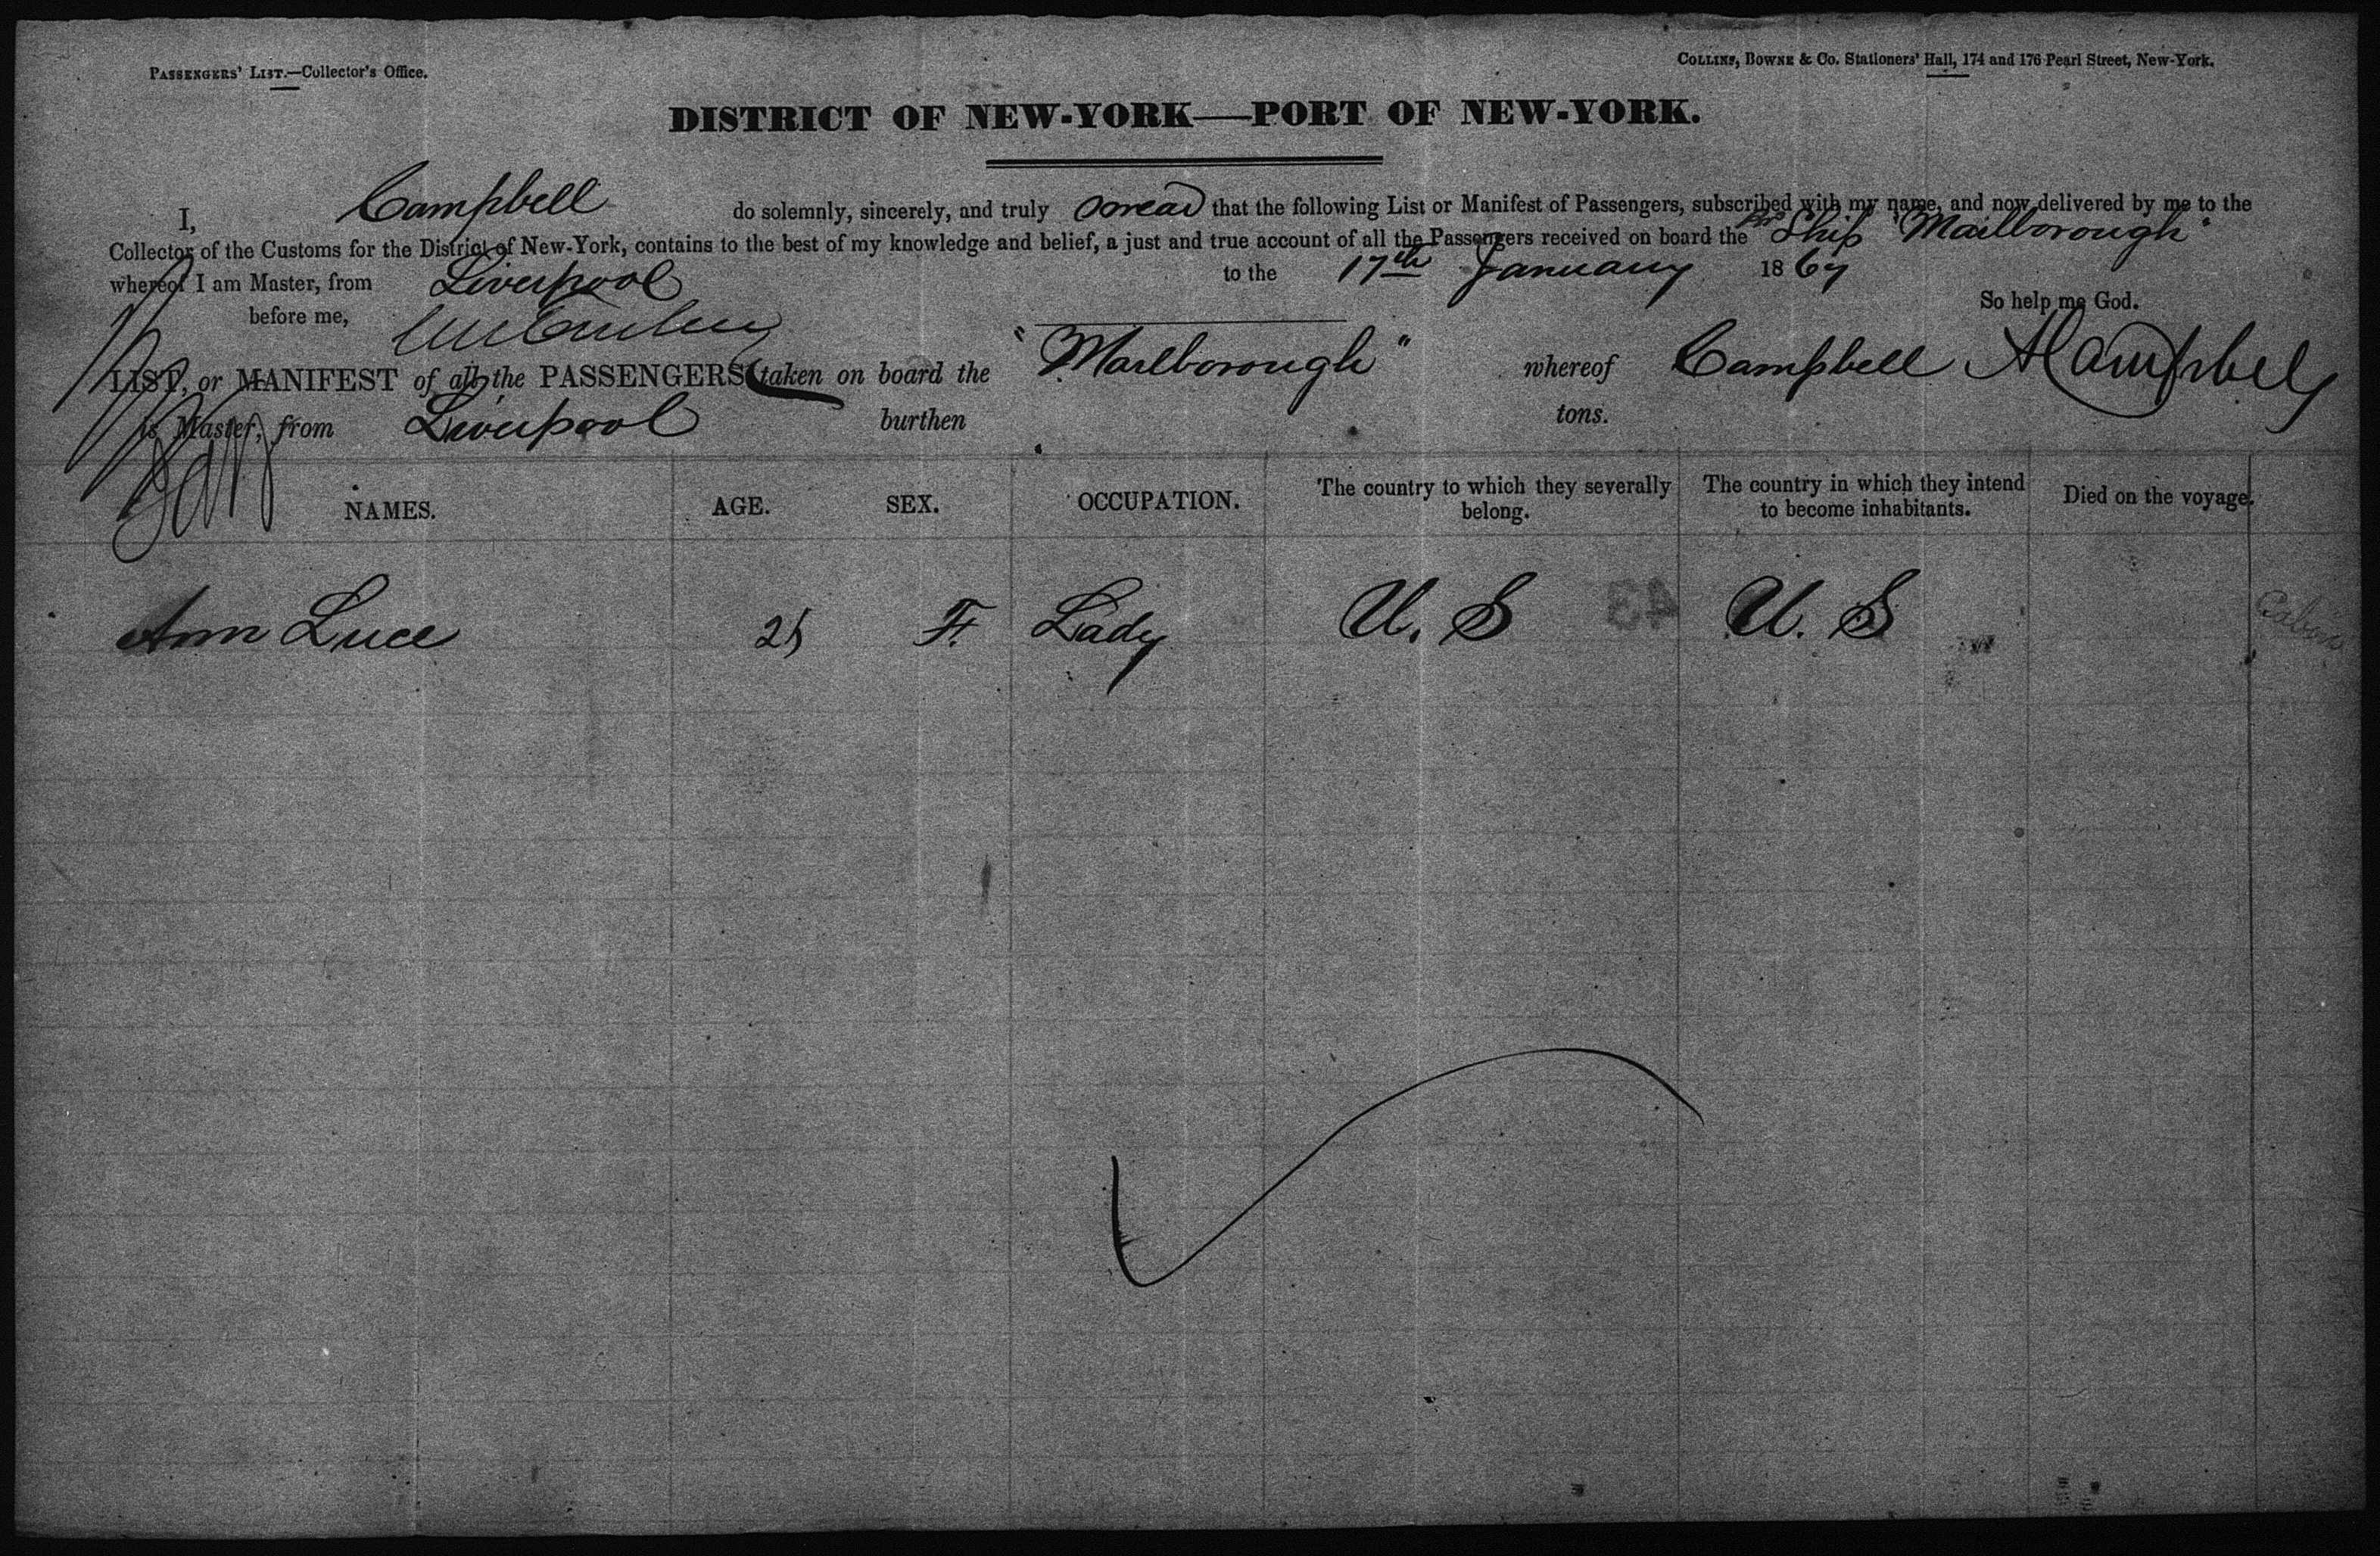 PASSENGERS' LIST.—Collector's Office.
COLLINS, BOWNE & Co. Stationers' Hall, 174 and 176 Pearl Street, New-York.
DISTRICT OF NEW-YORK—PORT OF NEW-YORK.
I, Campbell do solemnly, sincerely, and truly swear that the following List or Manifest of Passengers, subscribed with my name, and now delivered by me to the
Collector of the Customs for the District of New-York, contains to the best of my knowledge and belief, a just and true account of all the Passengers received on board the Ship "Marlborough"
whereof I am Master, from Liverpool to the 17th January 1867
So help me God.
before me,
LIST, or MANIFEST of all the PASSENGERS taken on board the "Marlborough" whereof Campbell A Campbell
is Master, from Liverpool burthen tons.
NAMES. AGE. SEX. OCCUPATION. The country to which they severally belong. The country in which they intend to become inhabitants. Died on the voyage.
Ann Luce 25 F. Lady U. S U. S
43